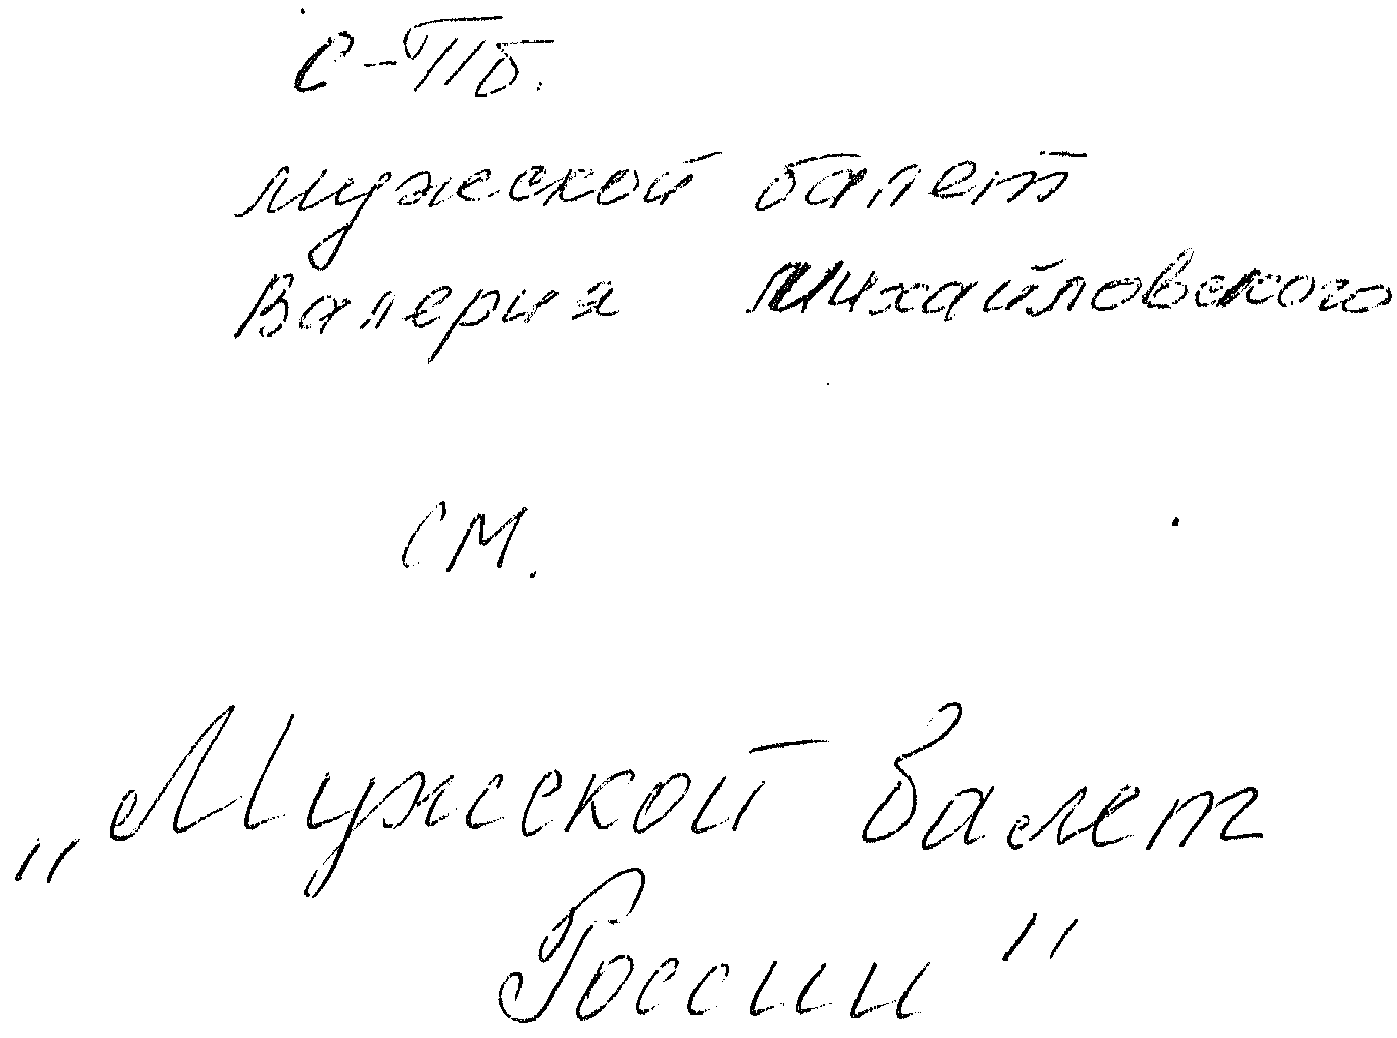 С-Пб.
мужской балет
Валерия Михайловского
см.
„Мужской балет
России"